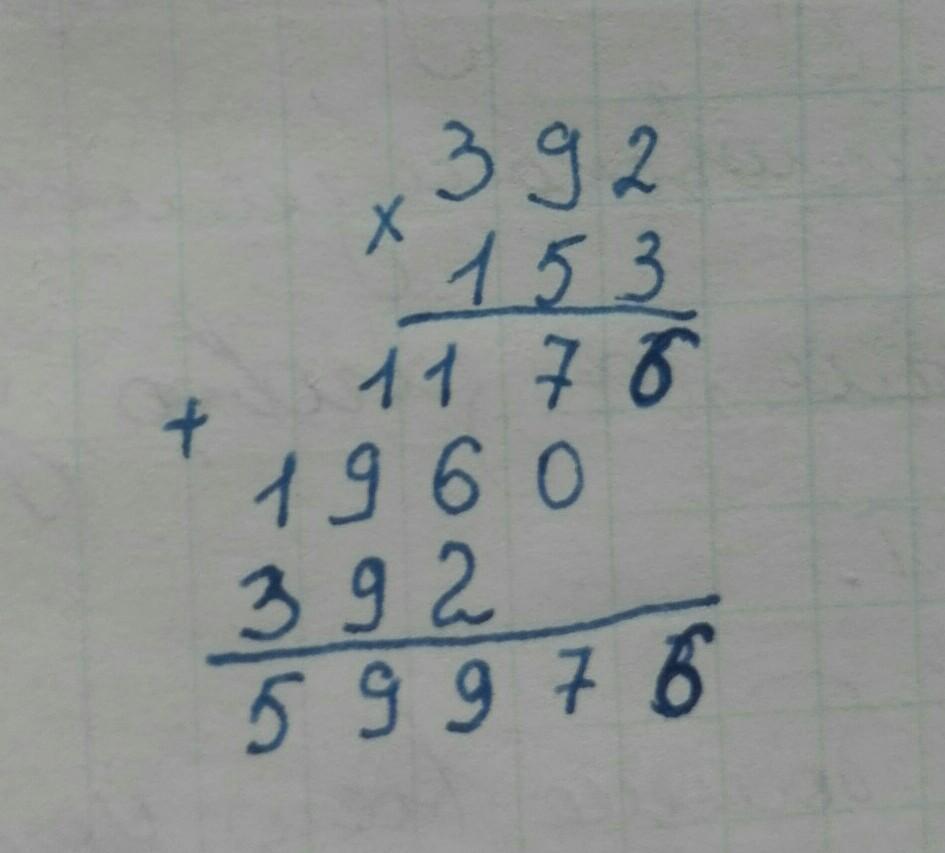 392
× 153
1176
+ 1960
392
59976